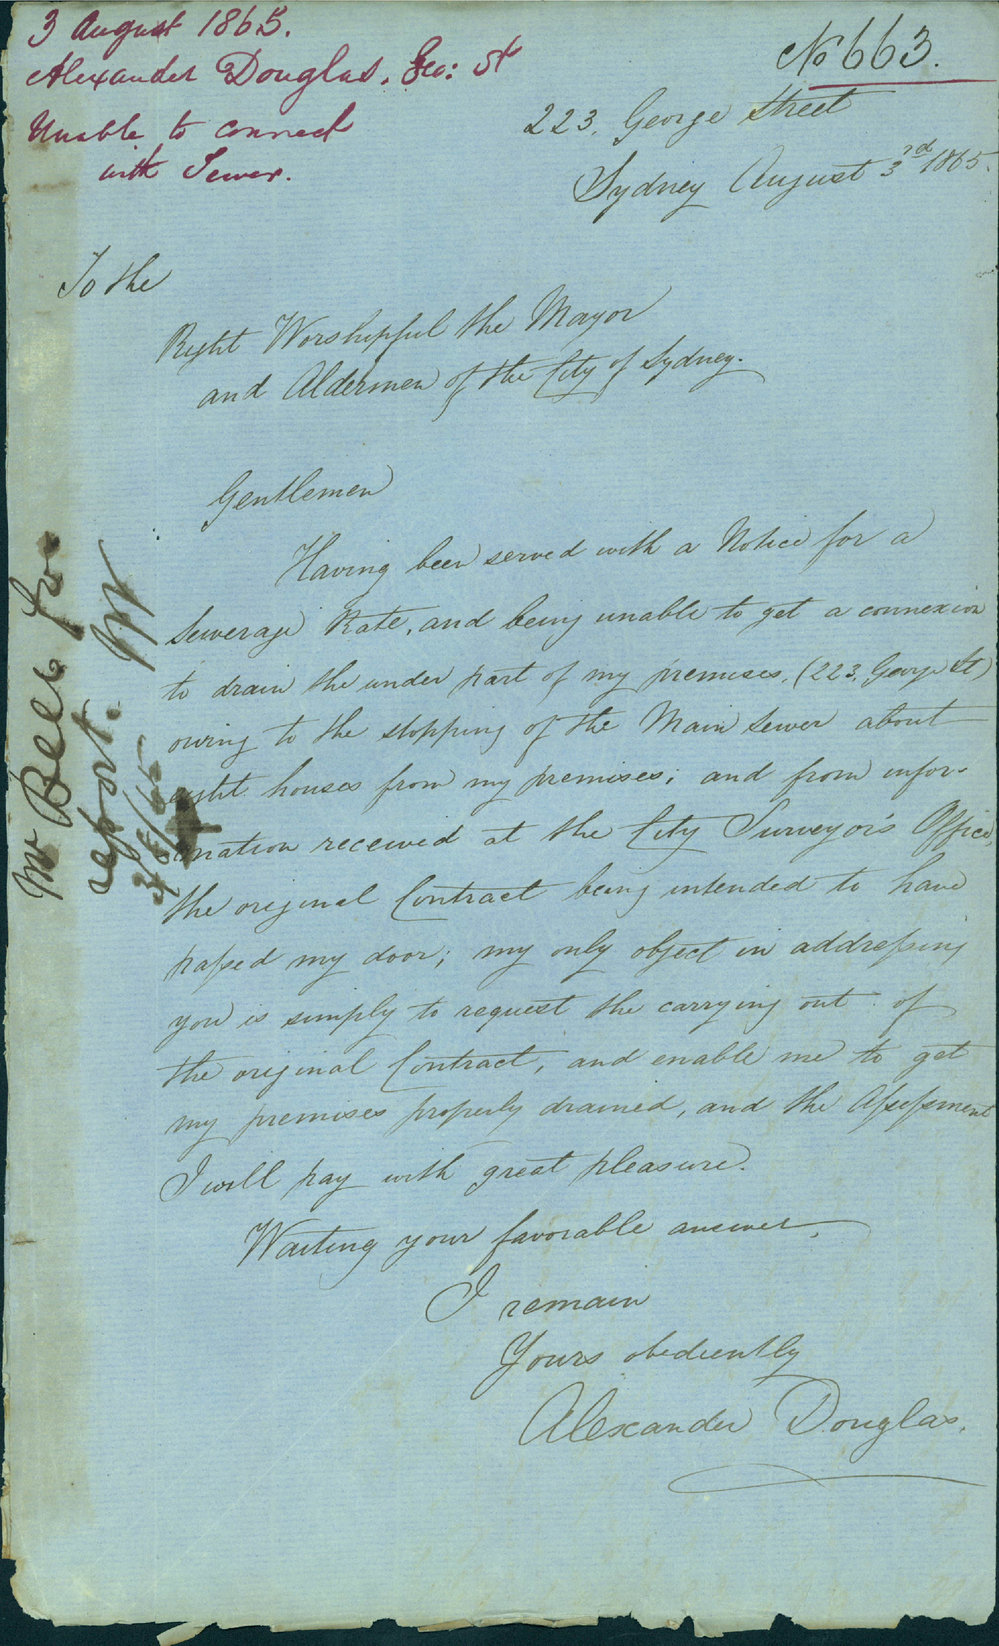 3 August 1865.
Alexander Douglas. Geo: St
Unable to connect
with Sewer.
No 663.
223, George Street
Sydney August 3rd 1865.
To the
Right Worshipful the Mayor
and Aldermen of the City of Sydney.
Gentlemen
Having been served with a Notice for a
Sewerage Rate, and being unable to get a connexion
to drain the under part of my premises, (223, George St)
owing to the stopping of the Main Sewer about
eight houses from my premises; and from infor-
mation received at the City Surveyor's Office,
the original Contract being intended to have
passed my door; my only object in addressing
you is simply to request the carrying out of
the original Contract, and enable me to get
my premises properly drained, and the Assessment
I will pay with great pleasure.
Waiting your favorable answer,
I remain
Yours obediently
Alexander Douglas.
Mr Bell for
report.